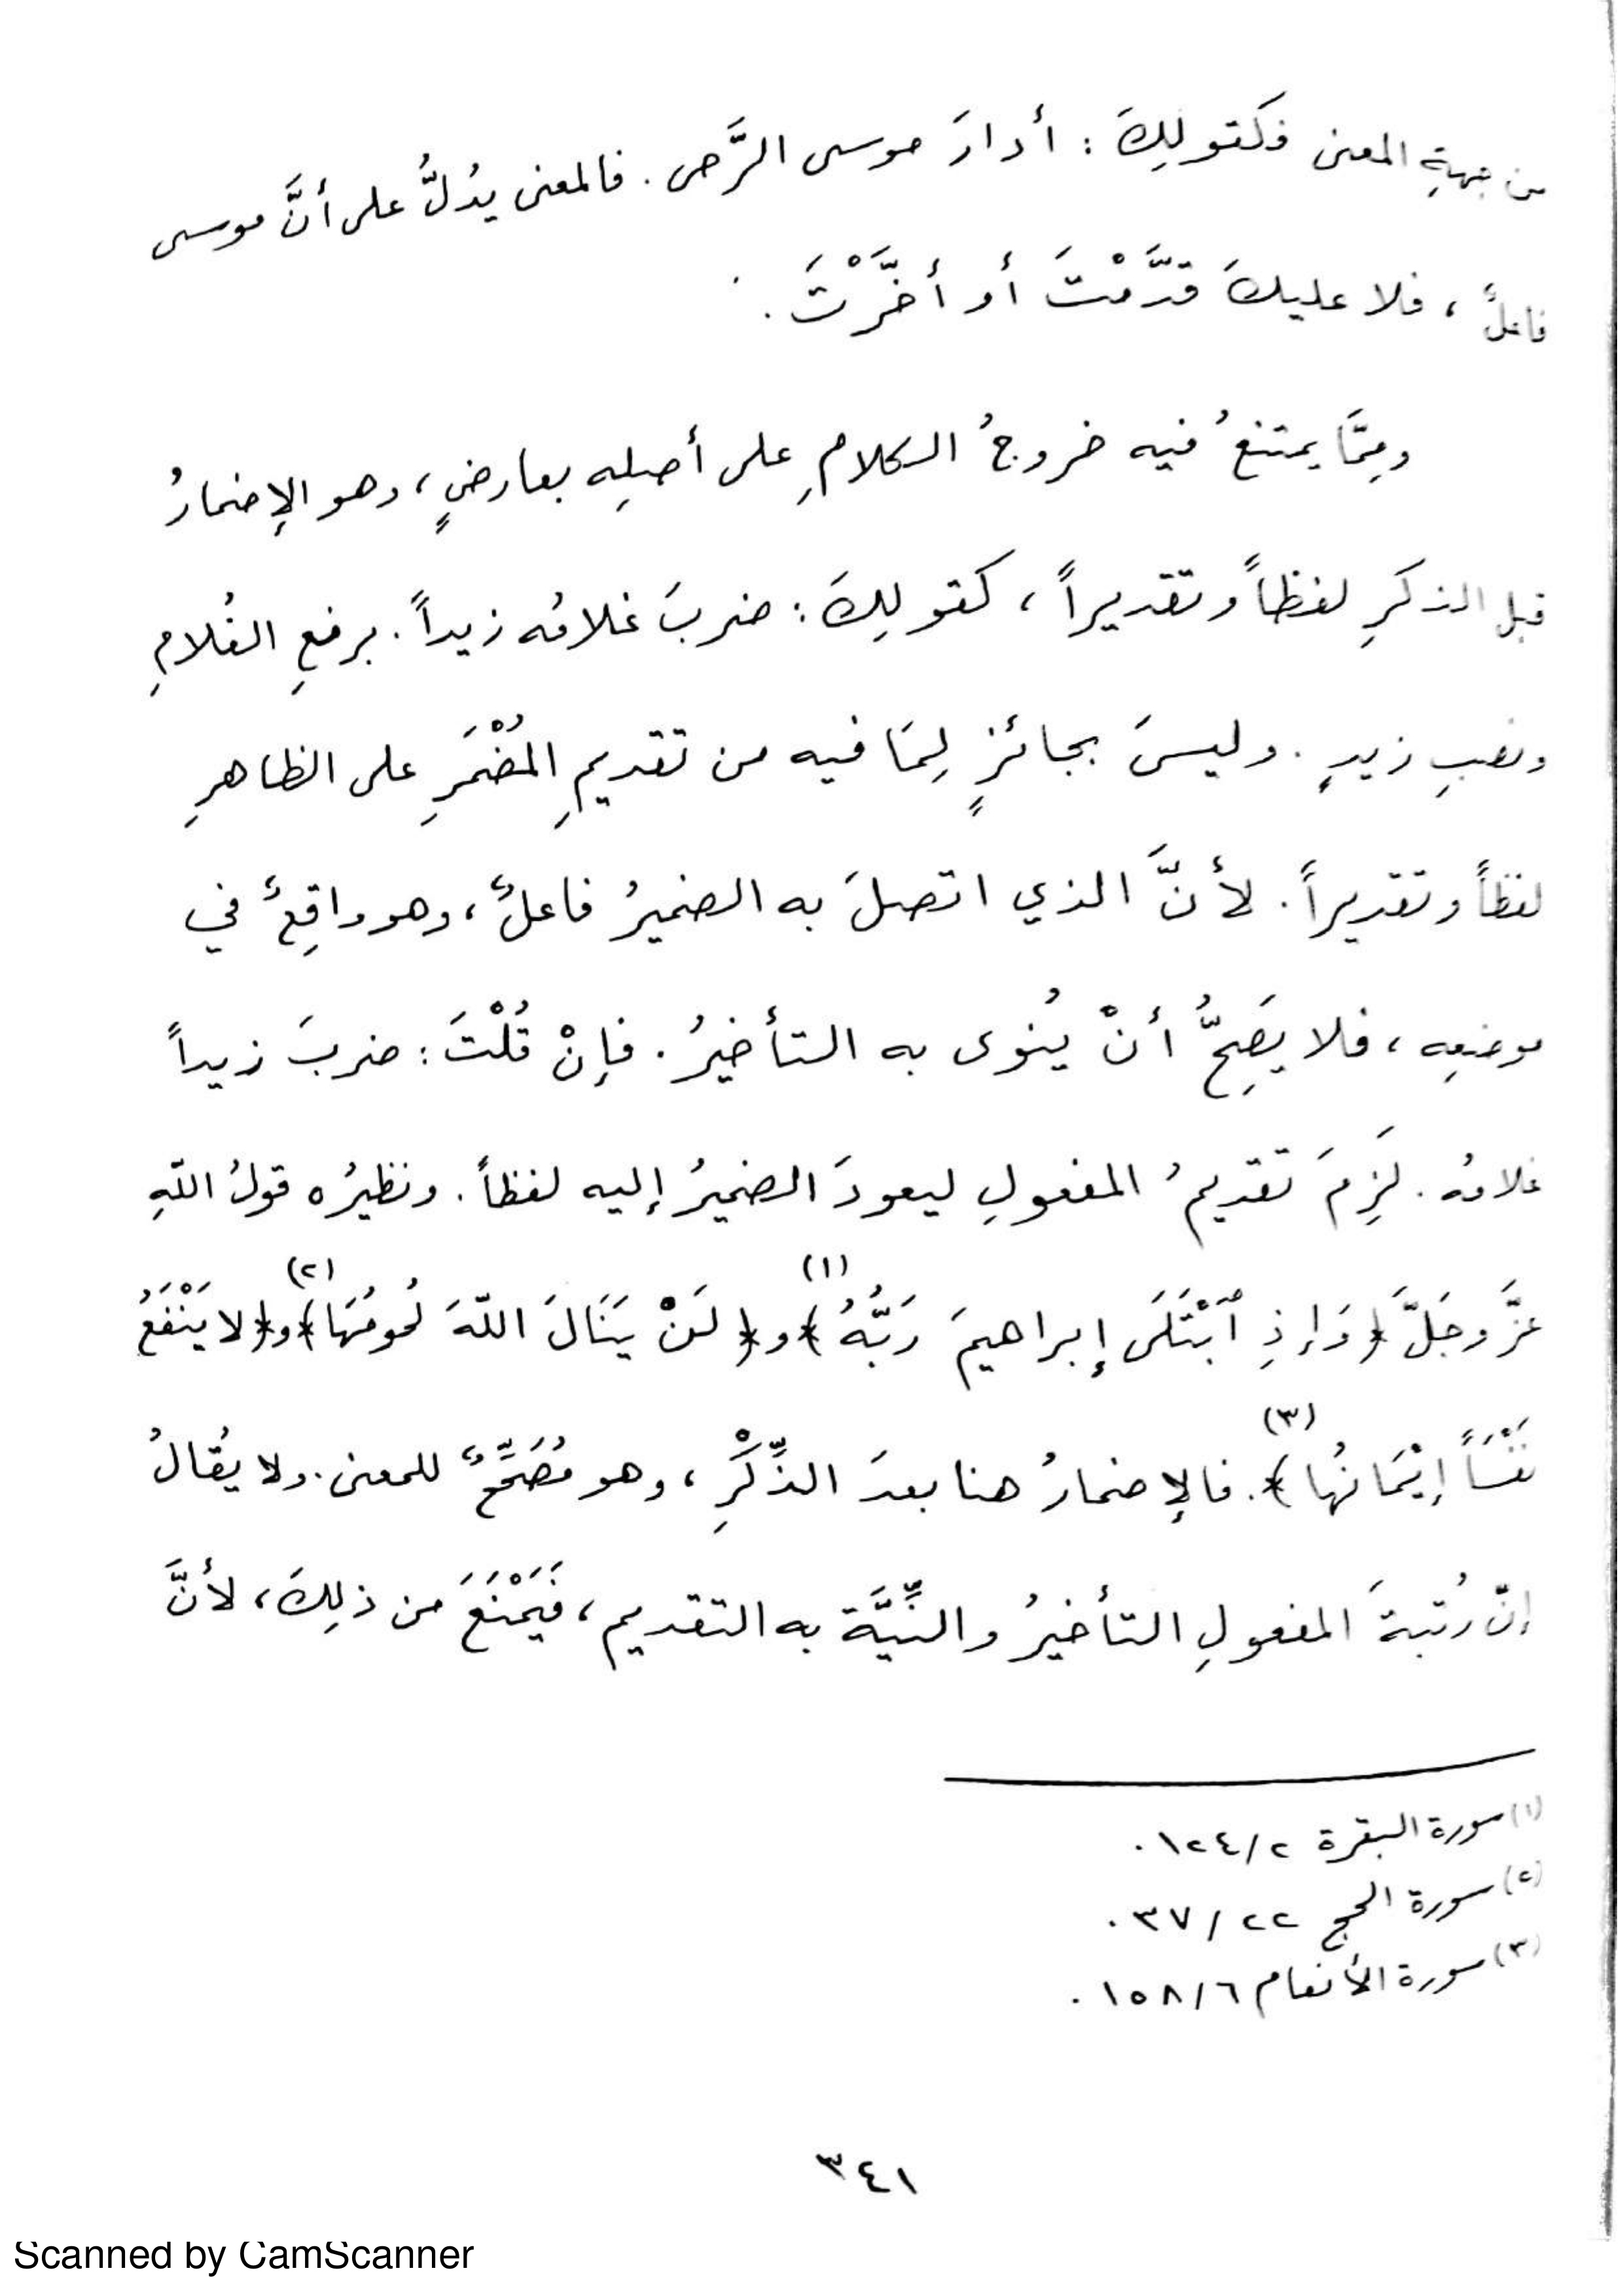 من جهةِ المعنى فكقولِكَ : أدارَ موسى الرَّحى . فالمعنى يدُلُّ على أنَّ موسى
فاعلٌ ، فلا عليكَ قدَّمْتَ أو أخَّرْتَ .
ومِمَّا يمتنعُ فيه خروجُ الكلامِ على أصلِه بعارضٍ ، وهو الإضمارُ
قبل الذكرِ لفظاً وتقديراً ، كقولِكَ : ضربَ غلامُه زيداً . برفعِ الغُلامِ
ونصبِ زيدٍ . وليسَ بجائزٍ لِمَا فيه من تقديمِ المُضْمَرِ على الظاهرِ
لفظاً وتقديراً . لأنَّ الذي اتصلَ به الضميرُ فاعلٌ ، وهو واقِعٌ في
موضعِه ، فلا يصَحُِّ أنْ يُنوى به التأخيرُ . فإنْ قُلْتَ : ضربَ زيداً
غلامُه . لَزِمَ تقديمُ المفعولِ ليعودَ الضميرُ إليه لفظاً . ونظيرُه قولُ اللّهِ
عزَّ وجَلَّ ﴿وَإذِ ٱبْتَلَى إبراهيمَ رَبُّهُ﴾(١) و﴿لَنْ يَنَالَ اللّهَ لُحومُهَا﴾(٢) و﴿لا يَنْفَعُ
نَفْسَاً إيْمَانُها﴾(٣) . فالإضمارُ هنا بعدَ الذِّكْرِ ، وهو مُصَحِّحٌ للمعنى . ولا يُقالُ
إنّ رُتبةَ المفعولِ التأخيرُ والنِّيَّة به التقديم ، فَيَمْنَعَ من ذلِكَ ، لأنَّ
(١) سورة البقرة ٢/١٢٤ .
(٢) سورة الحج ٢٢/٣٧ .
(٣) سورة الأنعام ٦/١٥٨ .
٣٤١
Scanned by CamScanner